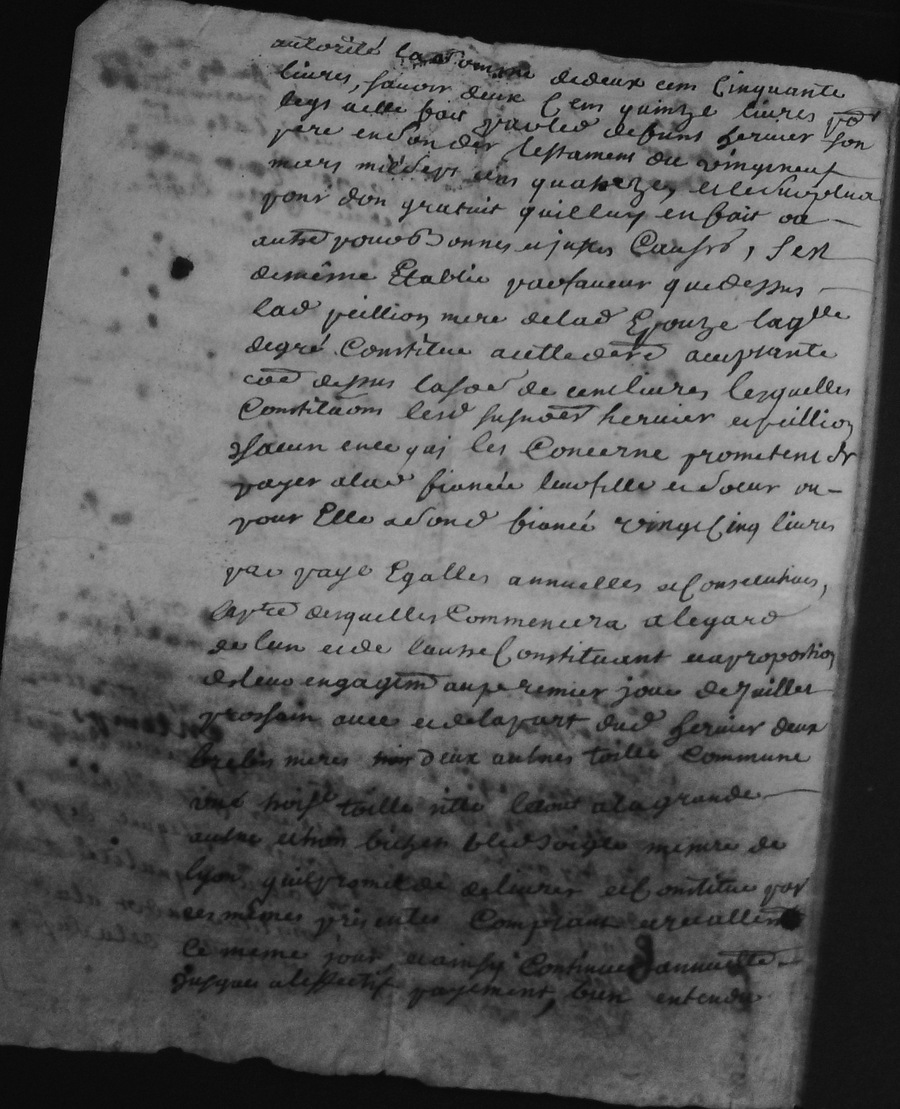 autorité la somme de deux cens Cinquante
livres, savoir deux Cens quinze livres po.r
legs a elle fait par led defunt hervier son
pere en son der testament du vingt neuf
mars mil sept cens quatorze, et le surplus
pour don gratuit quil luy en fait ou
autre pour bonnes et justes Causes, s'est
de même Etablie par devant que dessus
lad peillion mere de lad Epouze laq.lle
de gré Constitue a cette dere aceptante
coe dessus la soe de cent livres lesquelles
Constituons lesd susnoés hervier et peillion
chacun en ce qui les Concerne prometent de
payer a lad fiancée leur fille et soeur ou
pour Elle a sond fiancé vingt Cinq livres
par paye Egalles annuelles et Consecutives,
la p.re desquelles Commencera a legard
de lun et de lautre Constituant et a proportion
de leur engagem au premier jour de Juillet
prochain avec et de la part dud hervier deux
brebis meres deux autres toille Commune
une toille la grande
autre et un bichet bled soigle mesure de
lyon quil promet de delivrer et Constitue par
ces mêmes presentes Comptant
Ce meme jour et ainsy Continuer annuelle
jusques a leffectif payement, bien entendu